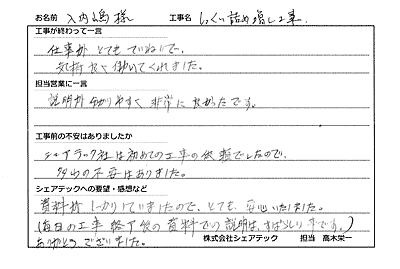 お名前 入内嶋 様 工事名 しっくい詰め増し工事
工事が終わって一言
仕事が とても ていねいで、
気持良く働いてくれました。
担当営業に一言
説明が分かりやすく 非常に良かったです。
工事前の不安はありましたか
シェアテック社は初めての工事の依頼でしたので、
多少の不安はありました。
シェアテックへの要望・感想など
資料が しっかりしていましたので、とても、安心いたしました。
(毎日の工事 終了後の資料での説明は、すばらしい 事です。)
ありがとう ございました。 株式会社シェアテック 担当 高木栄一